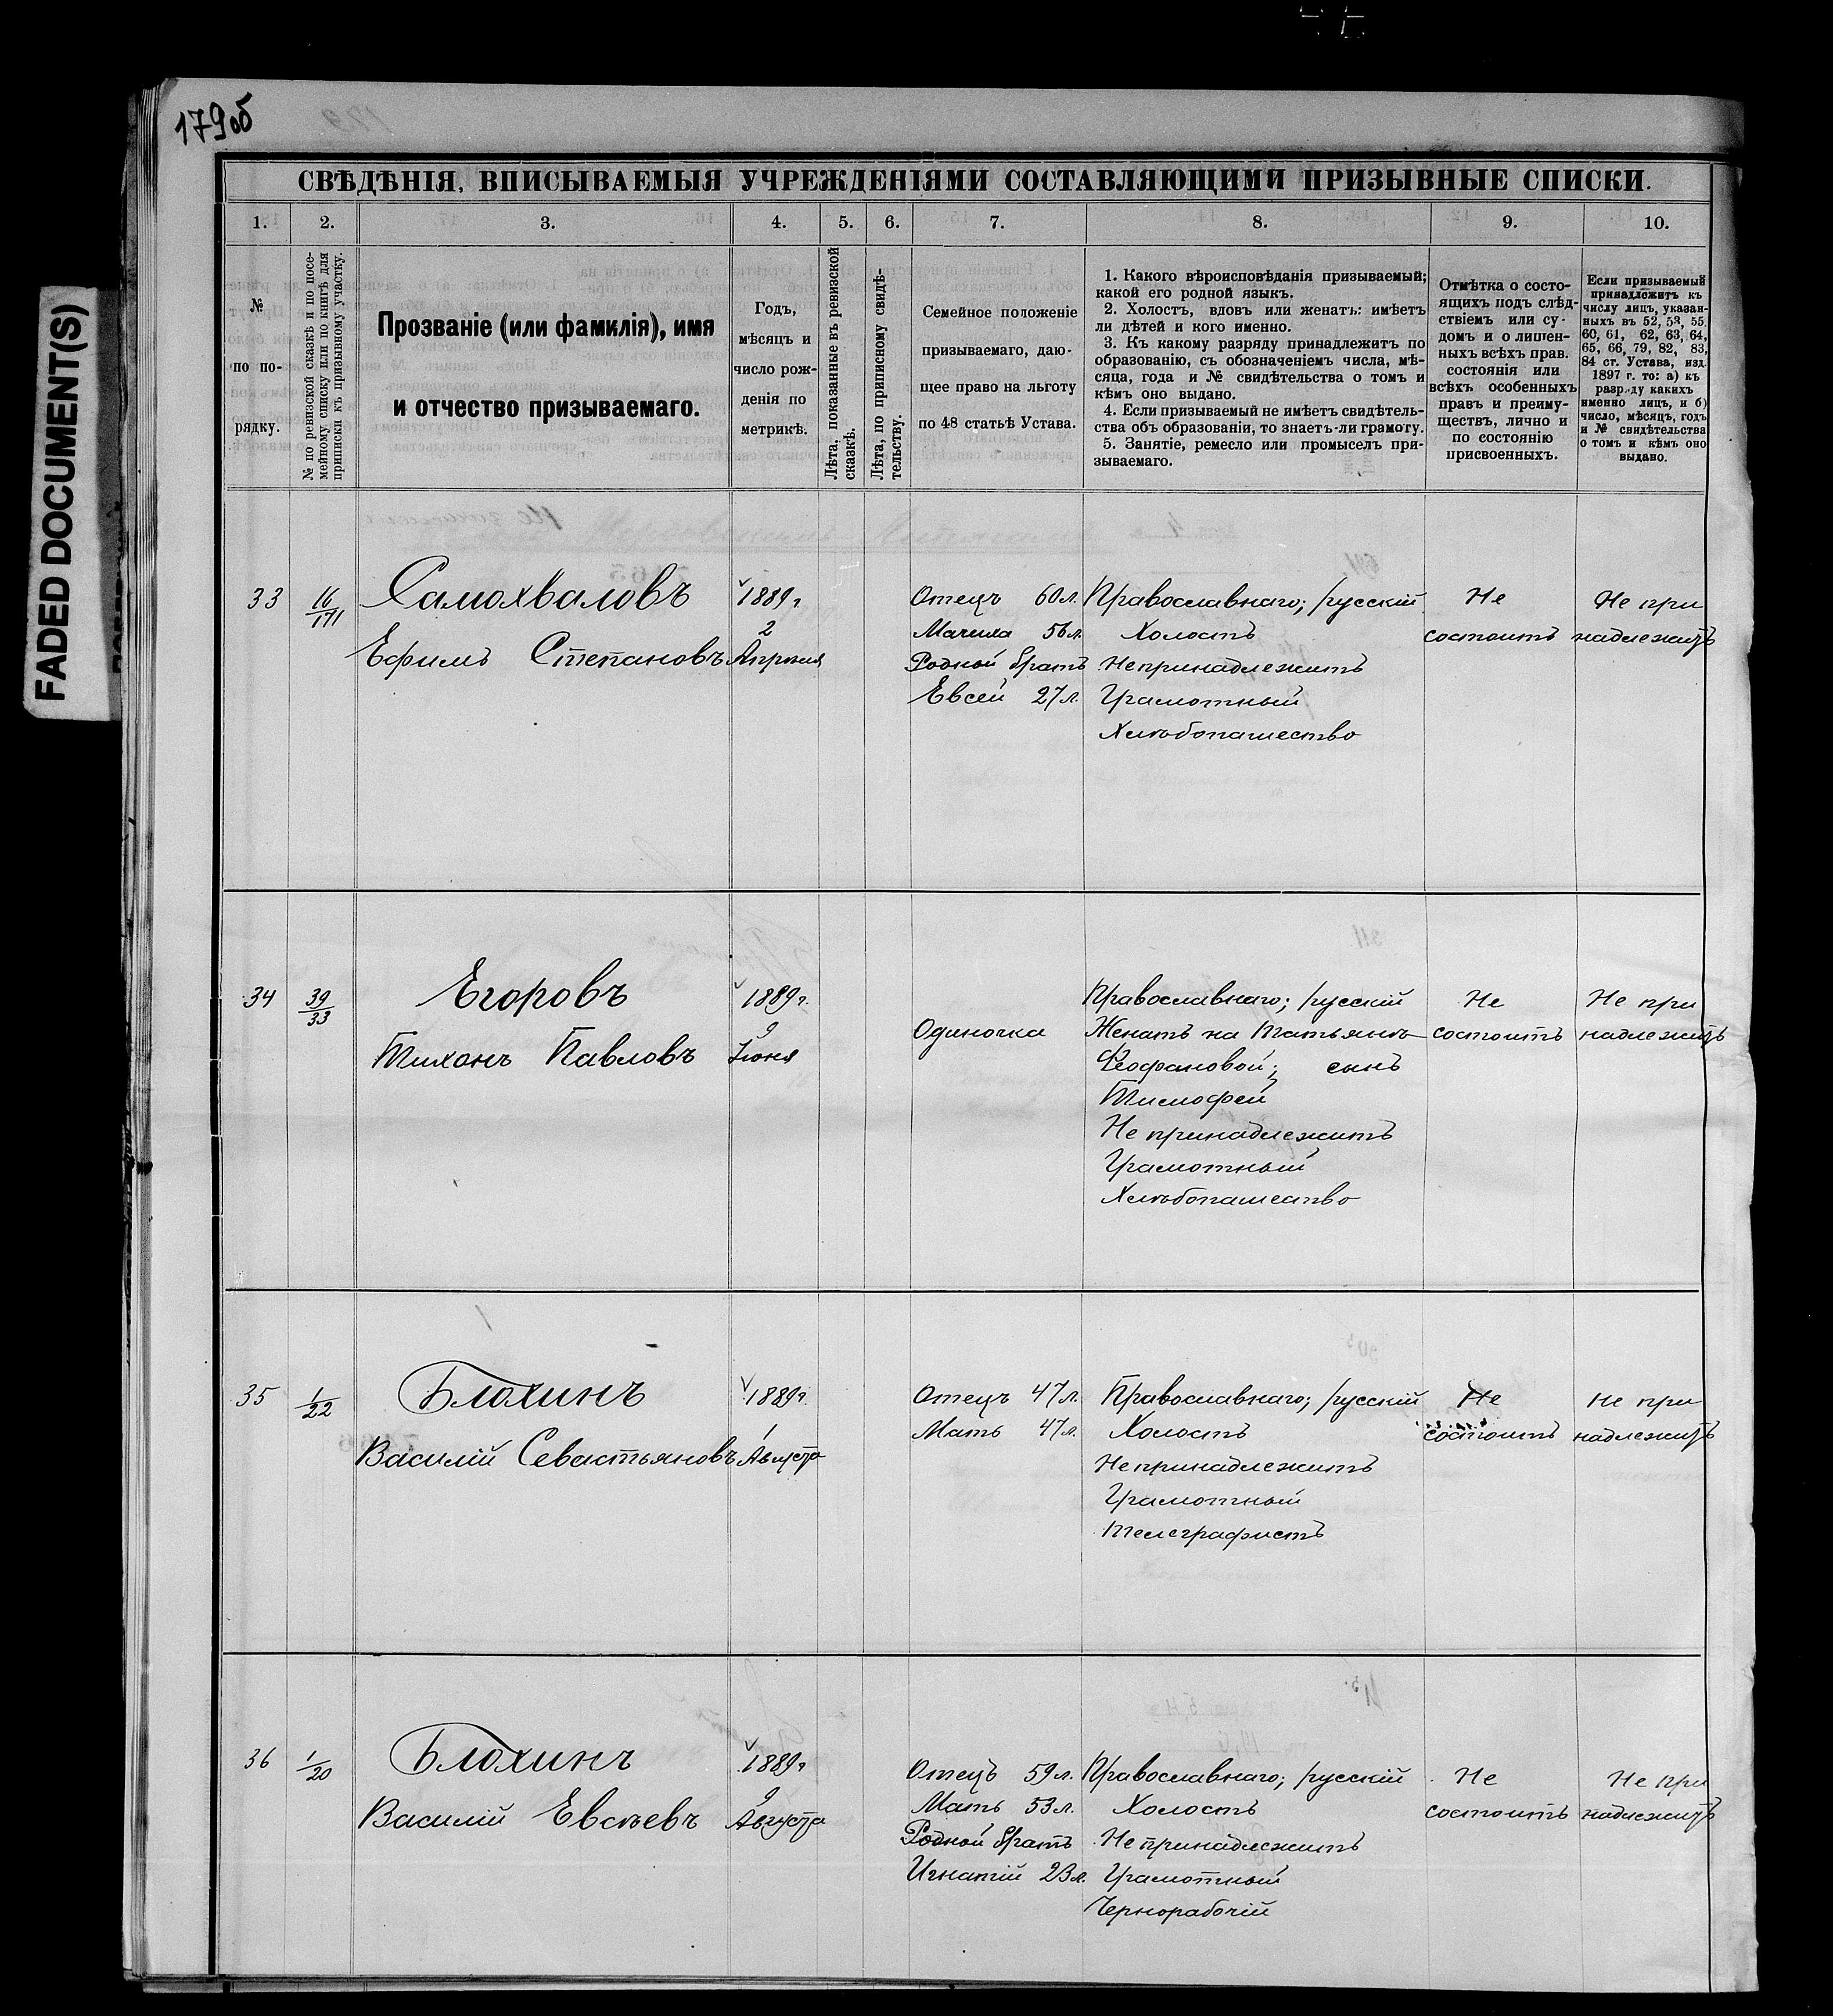 179об
FADED DOCUMENT(S)
СВѢДѢНІЯ, ВПИСЫВАЕМЫЯ УЧРЕЖДЕНІЯМИ СОСТАВЛЯЮЩИМИ ПРИЗЫВНЫЕ СПИСКИ.
1. 2. 3. 4. 5. 6. 7. 8. 9. 10.
№
по по-
рядку.
№ по ревизской сказкѣ и по посе-
мейному списку или по книгѣ для
приписки къ призывному участку.
Прозваніе (или фамилія), имя
и отчество призываемаго.
Годъ,
мѣсяцъ и
число рож-
денія по
метрикѣ.
Лѣта, показанные въ ревизской
сказкѣ.
Лѣта, по приписному свидѣ-
тельству.
Семейное положеніе
призываемаго, даю-
щее право на льготу
по 48 статьѣ Устава.
1. Какого вѣроисповѣданія призываемый;
какой его родной языкъ.
2. Холостъ, вдовъ или женатъ: имѣетъ
ли дѣтей и кого именно.
3. Къ какому разряду принадлежитъ по
образованію, съ обозначеніемъ числа, мѣ-
сяца, года и № свидѣтельства о томъ и
кѣмъ оно выдано.
4. Если призываемый не имѣетъ свидѣтель-
ства объ образованіи, то знаетъ-ли грамоту.
5. Занятіе, ремесло или промыселъ при-
зываемаго.
Отмѣтка о состо-
ящихъ подъ слѣд-
ствіемъ или су-
домъ и о лишен-
ныхъ всѣхъ прав.
состоянія или
всѣхъ особенныхъ
правъ и преиму-
ществъ, лично и
по состоянію
присвоенныхъ.
Если призываемый
принадлежитъ къ
числу лицъ, указан-
ныхъ въ 52, 53, 55,
60, 61, 62, 63, 64,
65, 66, 79, 82, 83,
84 ст. Устава, изд.
1897 г. то: а) къ
разряду какихъ
именно лицъ, и б)
число, мѣсяцъ, годъ
и № свидѣтельства
о томъ и кѣмъ оно
выдано.
33
16/171
Самохваловъ
Ефимъ Степановъ
1889 г
2
Апрѣля
Отецъ 60 л.
Мачиха 56 л.
Родной братъ
Евсей 27 л.
Православнаго; русскій
Холостъ
Не принадлежитъ
Грамотный
Хлѣбопашество
Не
состоитъ
Не при
надлежитъ
34
39/33
Егоровъ
Тихонъ Павловъ
1889 г.
9
Іюня
Одиночка
Православнаго; русскій
Женатъ на Татьянѣ
Феофановой; сынъ
Тимофей
Не принадлежитъ
Грамотный
Хлѣбопашество
Не
состоитъ
Не при
надлежитъ
35
1/22
Блохинъ
Василій Севастьяновъ
1889 г.
1
Августа
Отецъ 47 л.
Мать 47 л.
Православнаго; русскій
Холостъ
Не принадлежитъ
Грамотный
Телеграфистъ
Не
состоитъ
Не при
надлежитъ
36
1/20
Блохинъ
Василій Евсѣевъ
1889 г
9
Августа
Отецъ 59 л.
Мать 53 л.
Родной братъ
Игнатій 23 л.
Православнаго; русскій
Холостъ
Не принадлежитъ
Грамотный
Чернорабочій
Не
состоитъ
Не при
надлежитъ